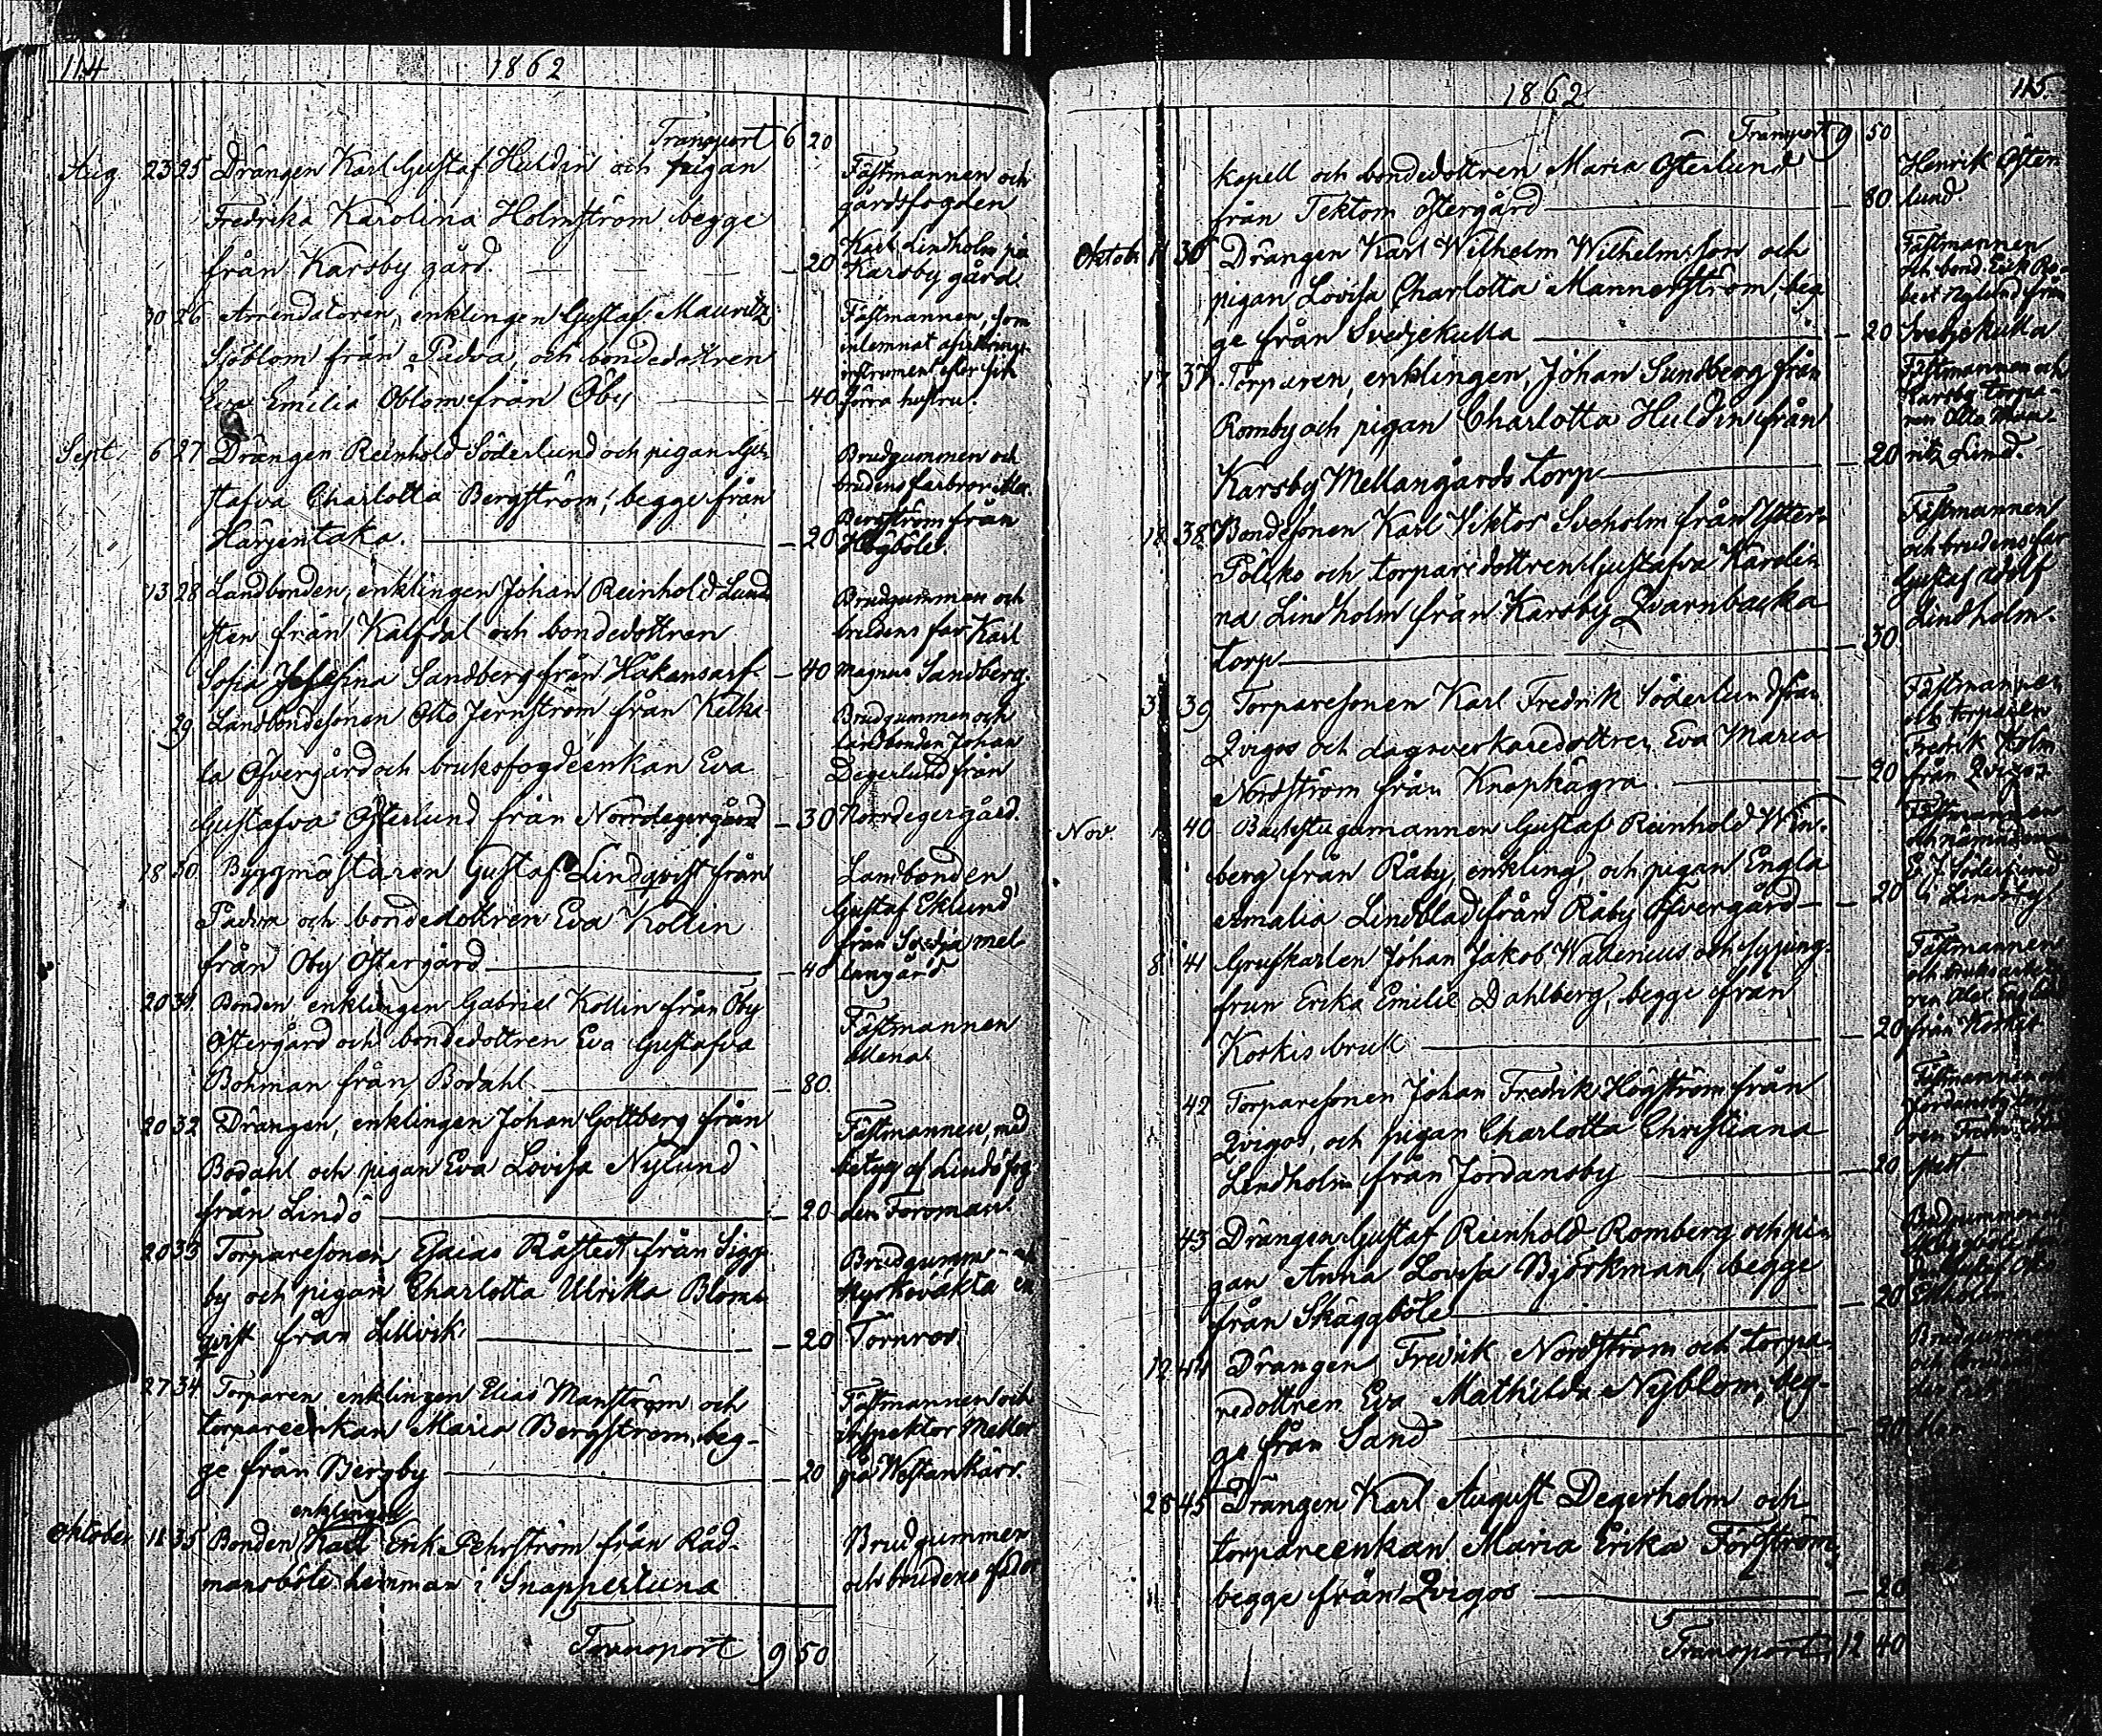 114
1862
Transport 6 20
Aug 23 25 Drängen Karl Gustaf Huldin och pigan
Fredrika Karolina Holmström begge
från Karsby gård. — 20
Fästmannen och
gårdsfogden
Karl Lindholm på
Karsby gård.
30 26 Arrendatoren, enklingen Gustaf Mauritz
Sjöblom från Padva, och bondedottren
Eva Emilia Öblom från Öby — 40
Fästmannen, som
inlemnat
instrument efter sin
förra hustru.
Sept. 6 27 Drängen Reinhold Söderlund och pigan Gu-
stafva Charlotta Bergström, begge från
Härjentaka. — 20
Brudgummen och
brudens farbror
Bergström från
Högböle.
13 28 Landbonden, enklingen Johan Reinhold Lund
sten från Kalfdal och bondedottren
Sofia Josefina Sandberg från Håkansarf — 40
Brudgummen och
brudens far Karl
Magnus Sandberg.
29 Landbondesonen Otto Jernström från Kelka-
la Öfvergård och bruksfogdeenkan Eva
Gustafva Österlund från Norrdegergård — 30
Brudgummen och
landbonden Johan
Degerlund från
Norrdegergård.
18 30 Byggmästaren Gustaf Lindqvist från
Padva och bondedottren Eva Kollin
från Öby Östergård — 40
Landbonden
Gustaf Eklund
från mel-
langård
20 31 Bonden, enklingen Gabriel Kollin från Öby
Östergård och bondedottren Eva Gustafva
Bohman från Bodahl — 80.
Fästmannen
allena.
20 32 Drängen, enklingen Johan Gottberg från
Bodahl och pigan Eva Lovisa Nylund
från Lindö — 20
Fästmannen, med
betyg af Lindö fog-
den Forsman.
20 33 Torparesonen Esaias Råstedt från Sigg-
by och pigan Charlotta Ulrika Blom-
qvist från Lillvik — 20
Brudgummen
Kyrkovakta
Törnroos.
27 34 Torparen, enklingen Elias Manström och
torpareenkan Maria Bergström, beg-
ge från Bergby — 20
Fästmannen och
inspektor Meller
på Westankärr.
enklingen
Oktober 11 35 Bonden Karl Erik Pehrström från Råd-
mansböle hemman i Snappertuna
Brudgummen
och brudens fader
Transport 9 50
1862
115
Transport 9 50
kapell och bondedottren Maria Österlund
från Tektom Östergård — 80
Henrik Öster
lund.
Oktob. 11 36 Drängen Karl Wilhelm Wilhelmsson och
pigan Lovisa Charlotta Mannerström, beg-
ge från Svedjekulla — 20
Fästmannen
och bond. Erik Ro-
bert Nylund från
Svedjekulla
17 37 Torparen, enklingen, Johan Sundberg från
Romby och pigan Charlotta Huldin från
Karsby Mellangårds torp — 20
Fästmannen och
Karsby torpa-
ren Otto Mau-
ritz Lind.
18 38 Bondesonen Karl Viktor Sveholm från Ytter-
Pöliks och torparedottren Gustafva Karoli-
na Lindholm från Karsby Qvarnbacka
torp — 30
Fästmannen
och brudens far
Gustaf Adolf
Lindholm.
31 39 Torparesonen Karl Fredrik Söderlund från
Qvigos och dagsverkaredottren Eva Maria
Nordström från Knaphagra — 20
Fästmannen
och torparen
Fredrik Holm
från Qvigos
Nov. 1 40 Backstugumannen Gustaf Reinhold Win-
berg från Råby, enkling, och pigan Engla
Amalia Lindblad från Råby Öfvergård — 20
Fästmannen
och nämndeman
E. J. Söderlund
i Lindsby
8 41 Grufkarlen Johan Jakob Wallenius och
frun Erika Emilie Dahlberg, begge från
Koskis bruk — 20
Fästmannen
och bruksarbeta-
ren
från Koskis
42 Torparesonen Johan Fredrik Högström från
Qvigos, och pigan Charlotta Christiana
Lindholm från Jordansby — 20
Fästmannen och
Jordansby torpa-
ren
43 Drängen Gustaf Reinhold Romberg och pi-
gan Anna Lovisa Björkman, begge
från Skäggböle — 20
Brudgummen
Skäggböle
Ekholm
12 44 Drängen Fredrik Nordström och torpa-
redottren Eva Mathilda Nyblom, beg-
ge från Sand — 20
Brudgummen
och
26 45 Drängen Karl August Degerholm och
torpareenkan Maria Erika Forsström,
begge från Qvigos — 20
Transport 12 40